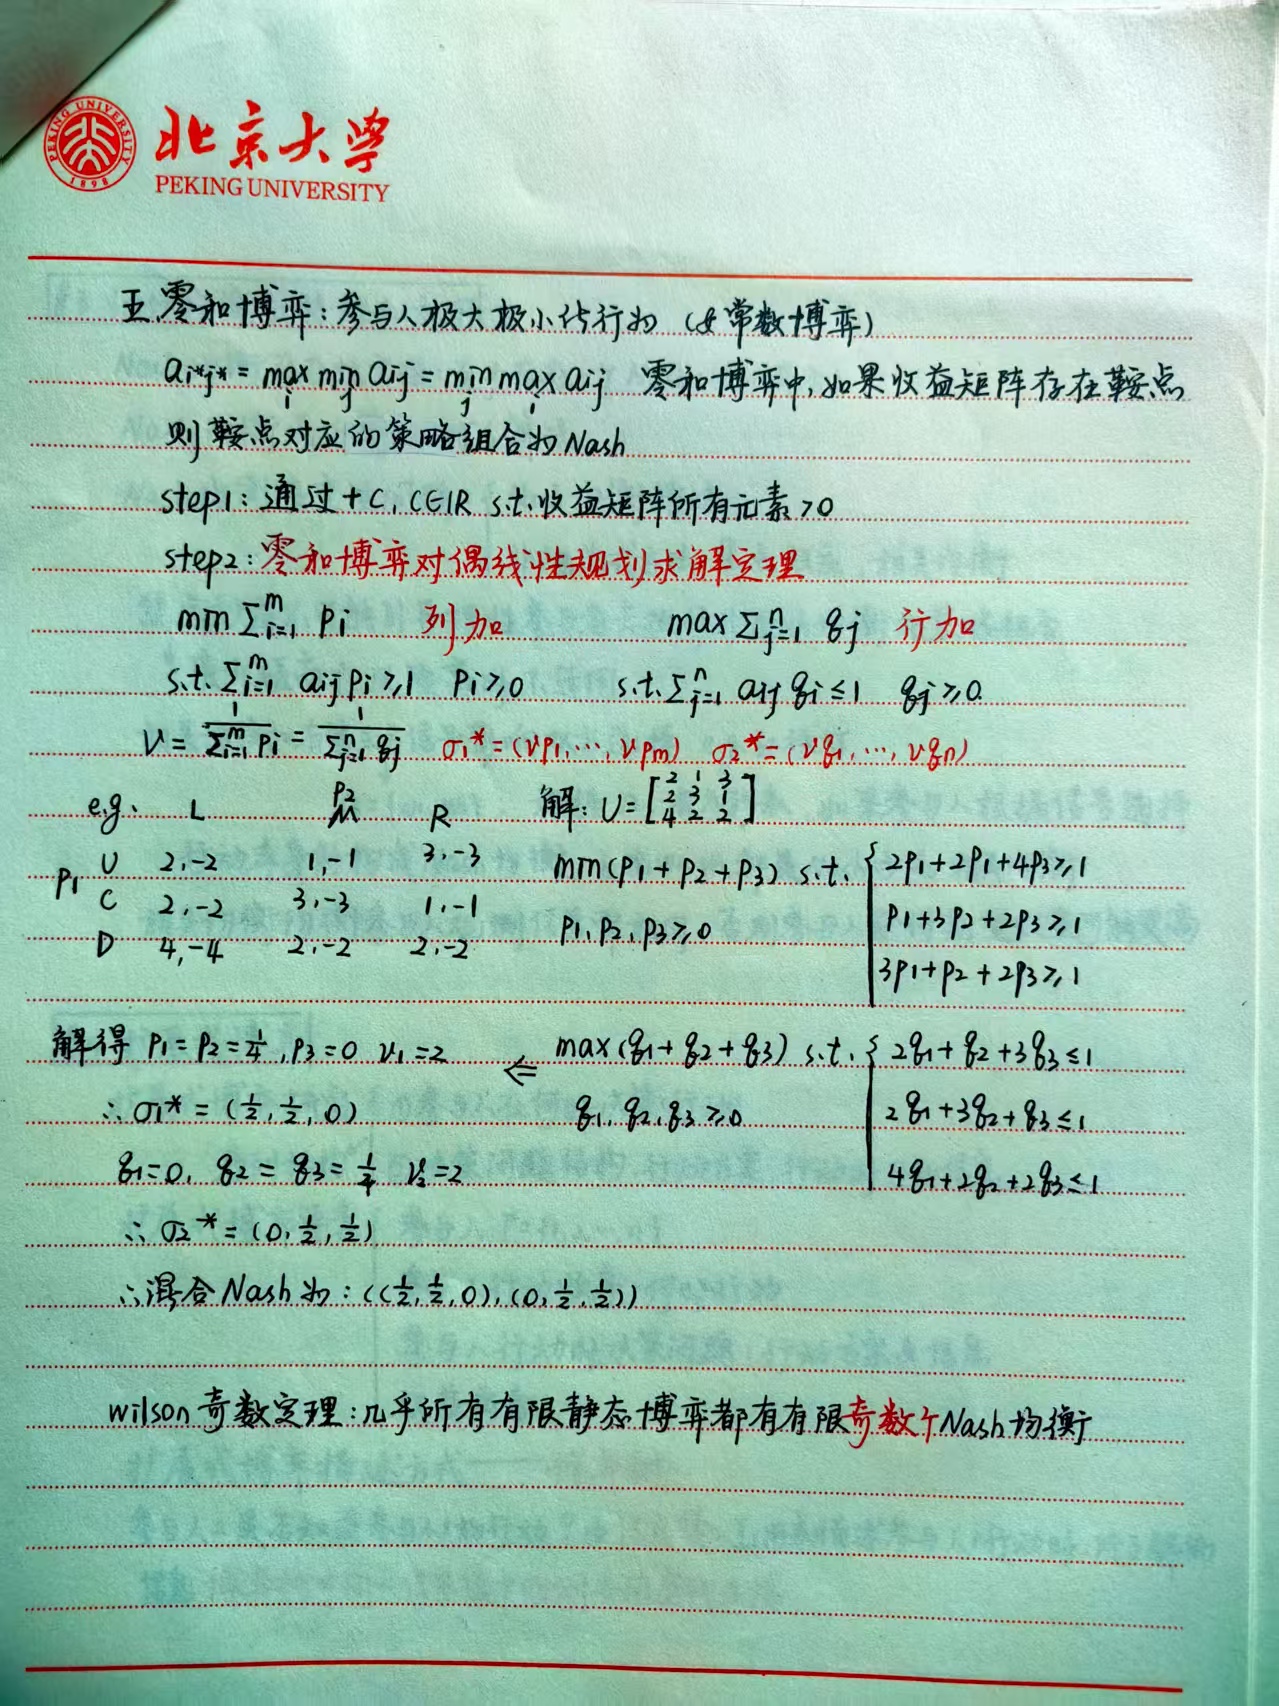 PEKING UNIVERSITY
1898
北京大学
PEKING UNIVERSITY
五.零和博弈:参与人极大极小化行为 (必常数博弈)
ai*j* = max min aij = min max aij 零和博弈中,如果收益矩阵存在鞍点
i j j i
则鞍点对应的策略组合为Nash
step1:通过+C, C∈IR s.t.收益矩阵所有元素>0
step2:零和博弈对偶线性规划求解定理
min Σ_{i=1}^m pi 列加 max Σ_{j=1}^n qj 行加
s.t. Σ_{i=1}^m aij pi ≥1 pi≥0 s.t. Σ_{j=1}^n aij qj ≤ 1 qj ≥0.
V = 1/(Σ_{i=1}^m pi) = 1/(Σ_{j=1}^n qj) σ1* = (vp1, ···, vpm) σ2* = (vq1, ···, vqn)
e.g. P2 解: U = [2 1 3; 2 3 1; 4 2 2]
L M R
U 2,-2 1,-1 3,-3 min(p1+p2+p3) s.t. { 2p1+2p1+4p3≥1
P1 C 2,-2 3,-3 1,-1 p1+3p2+2p3≥1
D 4,-4 2,-2 2,-2 p1,p2,p3≥0 3p1+p2+2p3≥1
解得 p1=p2=1/4, p3=0 v1=2 ⇐ max(q1+q2+q3) s.t. { 2q1+q2+3q3≤1
∴ σ1* = (1/2, 1/2, 0) q1, q2, q3 ≥0 2q1+3q2+q3≤1
q1=0, q2=q3=1/4 v2=2 4q1+2q2+2q3≤1
∴ σ2* = (0, 1/2, 1/2)
∴混合Nash为: ((1/2, 1/2, 0), (0, 1/2, 1/2))
wilson奇数定理:几乎所有有限静态博弈都有有限奇数个Nash均衡